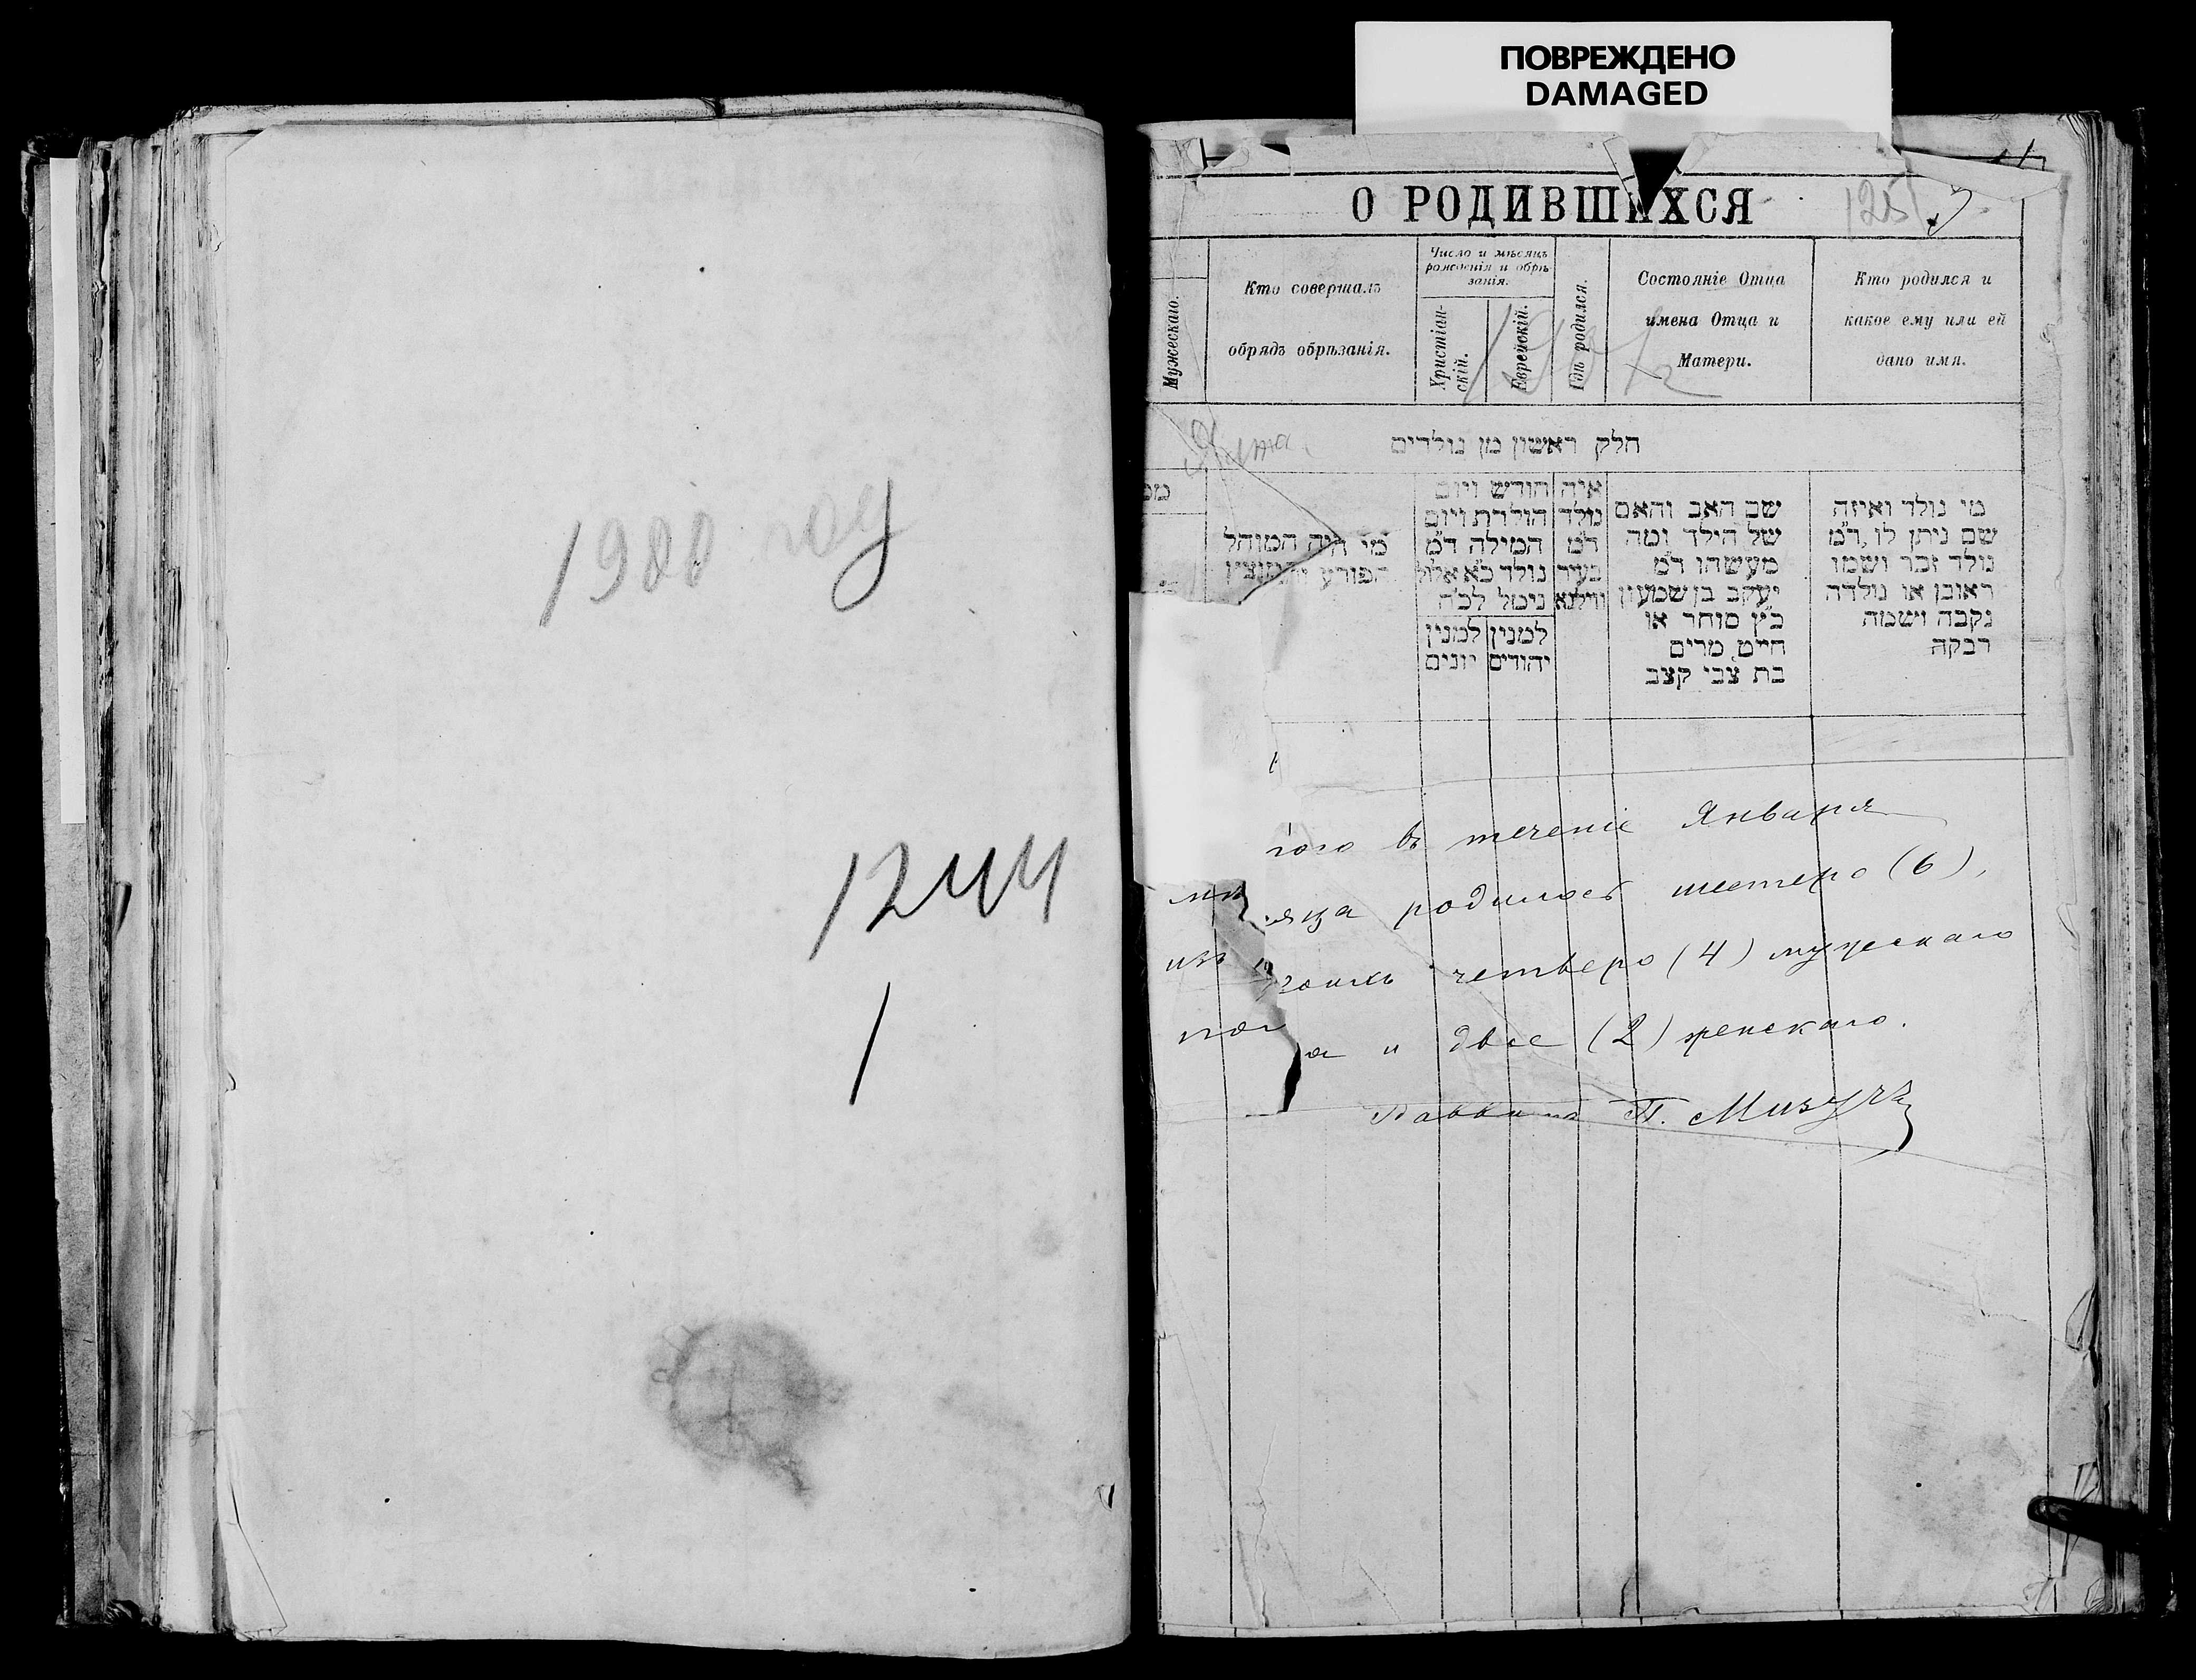 1900 году
1244
1
ПОВРЕЖДЕНО
DAMAGED
О РОДИВШИХСЯ
125
Мужескаго.
Кто совершалъ
обрядъ обрѣзанія.
Число и мѣсяцъ
рожденія и обрѣ-
занія.
Христіан-
скій.
Еврейскій.
Гдѣ родился.
Состояніе Отца
имена Отца и
Матери.
Кто родился и
какое ему или ей
дано имя.
חלק ראשון מן נולדים
מי היה המוהל
הפורע והמוצץ
חודש ויום
הולדת ויום
המילה ד״מ
נולד כ״א אלול
נימל לכ״ה
למנין יהודים
למנין יונים
איה
נולד
ד״מ
בעיר
ווילנא
שם האב והאם
של הילד ומה
מעשהו ד״מ
יעקב בן שמעון
כ״ץ סוחר או
חייט מרים
בת צבי קצב
מי נולד ואיזה
שם ניתן לו ד״מ
נולד זכר ושמו
ראובן או נולדה
נקבה ושמה
רבקה
въ теченіе Января
родилось шестеро (6),
изъ четверо (4) мужескаго
и двое (2) женскаго.
Раввинъ П.